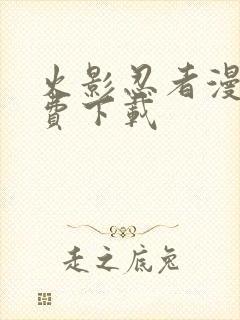 火影忍者漫
費下載
走之底兔